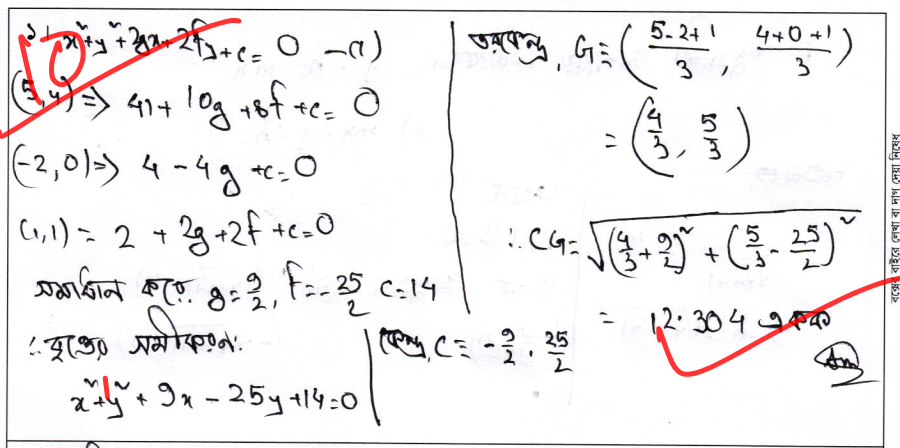 x²+y²+2gx+2fy+c=0 —(1)
(5,4) ⇒ 41+10g+8f+c=0
(-2,0) ⇒ 4-4g+c=0
(1,1) = 2+2g+2f+c=0
সমাধান করে, g=9/2, f=-25/2 c=14
∴ বৃত্তের সমীকরণ:
x²+y²+9x-25y+14=0
কেন্দ্র, C = -9/2, 25/2
ভরকেন্দ্র, G≡(5-2+1/3, 4+0+1/3)
=(4/3, 5/3)
∴ CG=√((4/3+9/2)²+(5/3-25/2)²)
= 12.304 একক
Ans
10
বক্সের বাইরে লেখা বা দাগ দেয়া নিষেধ